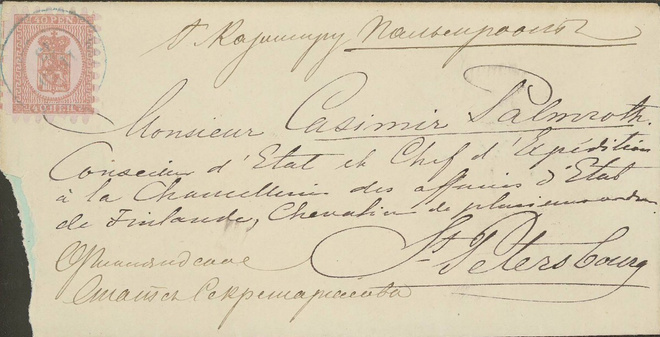 40 PEN.
г. Казимиру Пальмроотъ
Monsieur Casimir Palmroth.
Conseiller d'Etat et Chef d'Expédition
à la Chancellerie des affaires d'Etat
de Finlande, Chevalier de plusieurs ordres
St Petersbourg
Финляндское
Статсъ Секретарiатство